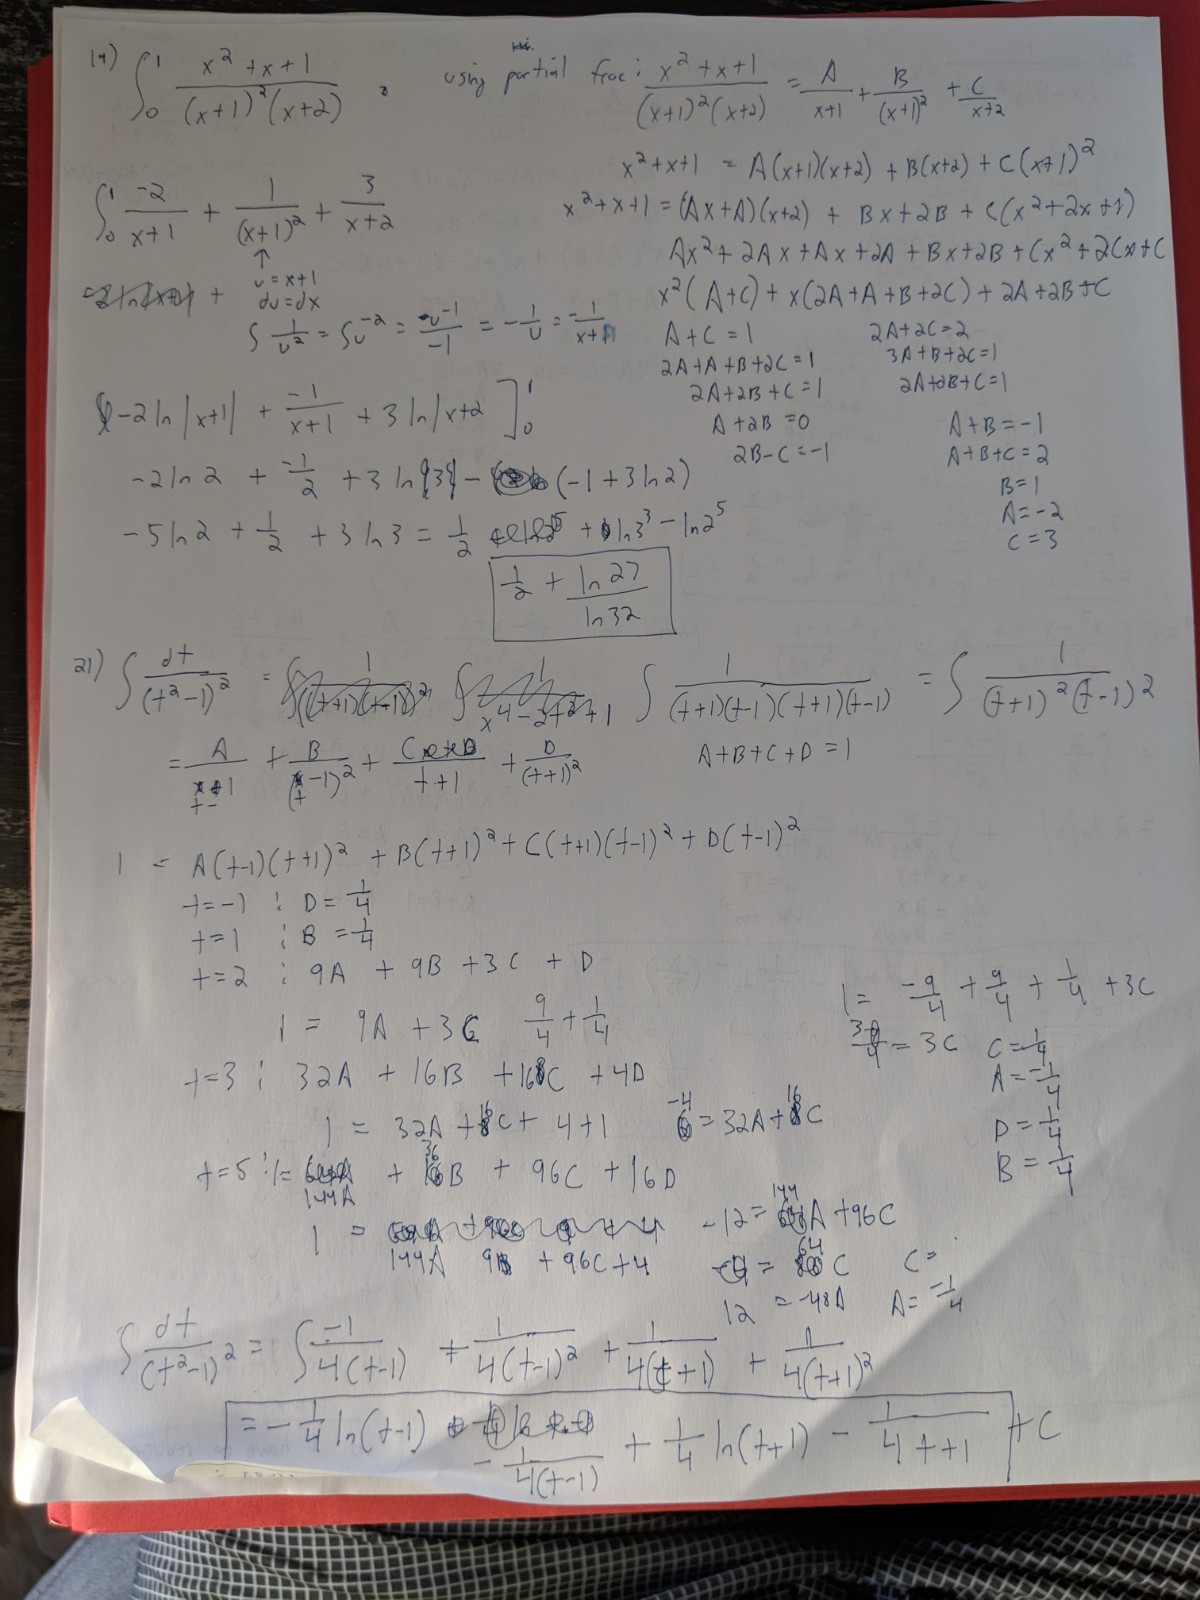 19) ∫₀¹ (x² + x + 1)/((x+1)²(x+2)) . using partial frac: (x² + x + 1)/((x+1)²(x+2)) = A/(x+1) + B/(x+1)² + C/(x+2)
x² + x + 1 = A(x+1)(x+2) + B(x+2) + C(x+1)²
∫₀¹ -2/(x+1) + 1/(x+1)² + 3/(x+2)
x² + x + 1 = (Ax+A)(x+2) + Bx + 2B + C(x² + 2x + 1)
↑
Ax² + 2Ax + Ax + 2A + Bx + 2B + Cx² + 2Cx + C
u = x+1
du = dx
x²(A+C) + x(2A+A+B+2C) + 2A+2B+C
∫ 1/u² = ∫u⁻² = u⁻¹/-1 = -1/u = -1/(x+1)
A+C = 1
2A+A+B+2C = 1
2A+2B+C = 1
A+2B = 0
2B-C = -1
2A+2C = 2
3A+B+2C = 1
2A+2B+C = 1
A+B = -1
A+B+C = 2
B = 1
A = -2
C = 3
-2 ln|x+1| + -1/(x+1) + 3 ln|x+2 ]₀¹
-2 ln 2 + -1/2 + 3 ln|3| - (-1 + 3 ln 2)
-5 ln 2 + 1/2 + 3 ln 3 = 1/2 + ln 3³ - ln 2⁵
1/2 + ln 27/ln 32
21) ∫ dt/(t²-1)² = ∫ 1/((t+1)(t-1)(t+1)(t-1)) = ∫ 1/((t+1)²(t-1)²)
= A/(t-1) + B/(t-1)² + C/(t+1) + D/(t+1)²
A+B+C+D = 1
1 = A(t-1)(t+1)² + B(t+1)² + C(t+1)(t-1)² + D(t-1)²
t=-1 : D = 1/4
t=1 : B = 1/4
t=2 : 9A + 9B + 3C + D
1 = 9A + 3C 9/4 + 1/4
t=3 : 32A + 16B + 16C + 4D
1 = 32A + 16C + 4 + 1 -4 = 32A + 16C
t=5 : 1 = 144A + 36B + 96C + 16D
1 = 144A 9B + 96C + 4
-12 = 144A + 96C
= 64C
12 = -48A
C =
A = -1/4
1 = -9/4 + 9/4 + 1/4 + 3C
3/4 = 3C C = 1/4
A = -1/4
D = 1/4
B = 1/4
∫ dt/(t²-1)² = ∫ -1/(4(t-1)) + 1/(4(t-1)²) + 1/(4(t+1)) + 1/(4(t+1)²)
= -1/4 ln(t-1) - 1/(4(t-1)) + 1/4 ln(t+1) - 1/(4 t+1) + C